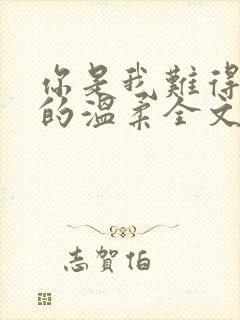 你是我難得
的溫柔全文
志賀伯